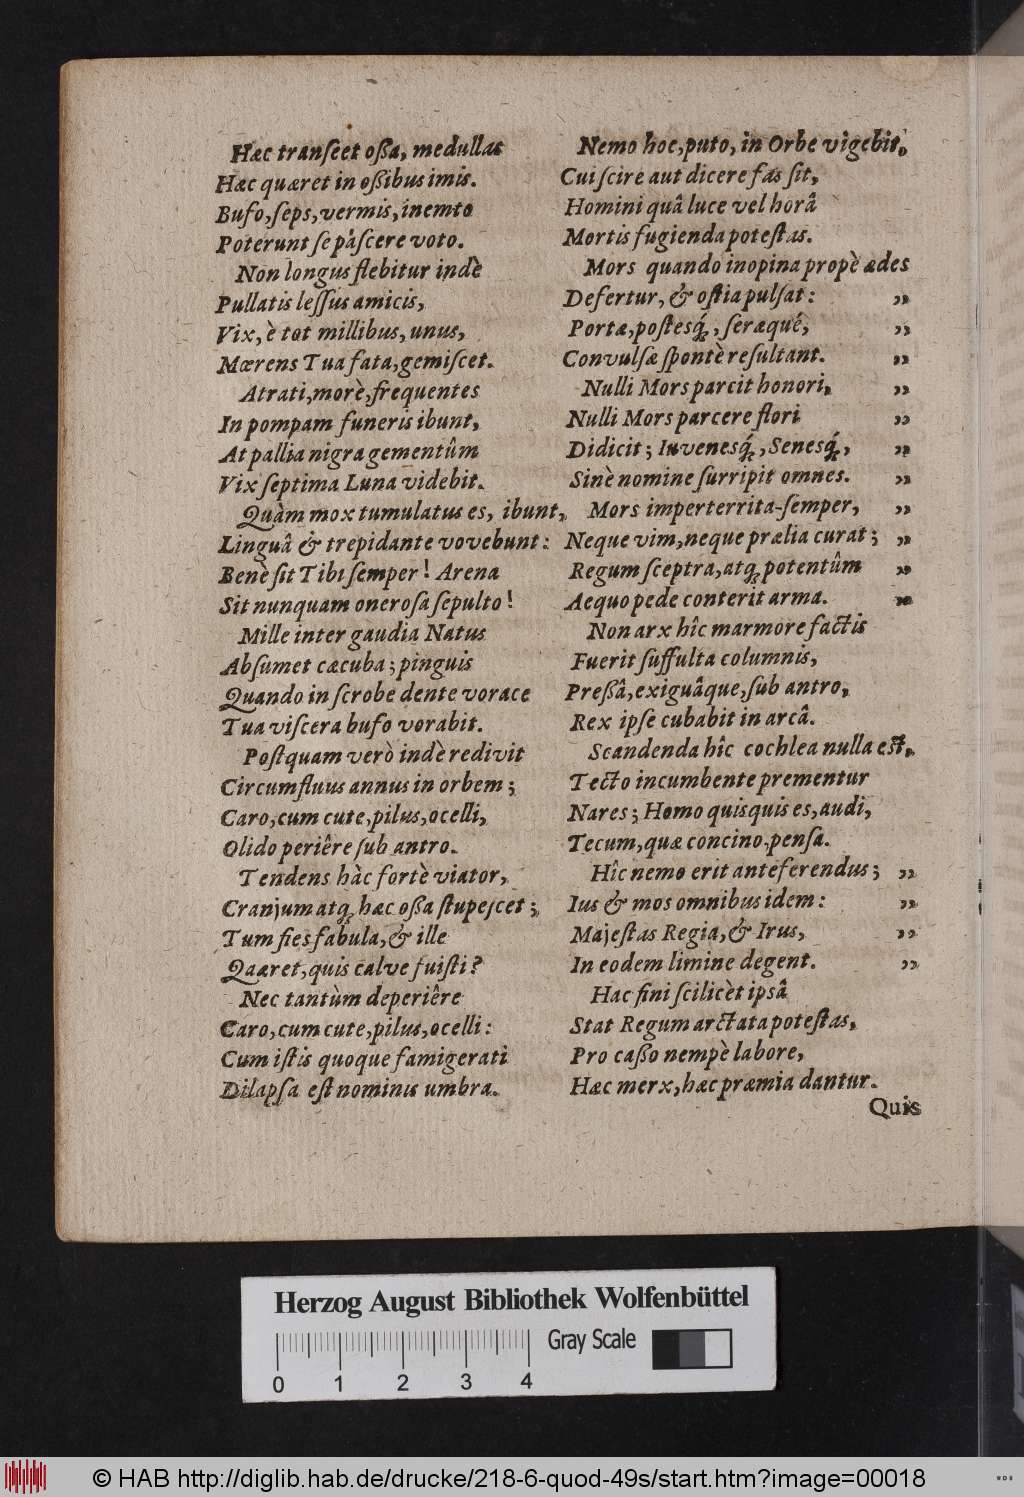 Hæc tranſeet oßa, medullas
Hæc quæret in oßibus imis.
Bufo, ſeps, vermis, inemto
Poterunt ſe páſcere voto.
Non longus flebitur indè
Pullatis leſſus amicis,
Vix, è tot millibus, unus,
Mœrens Tua fata, gemiſcet.
Atrati, morè, frequentes
In pompam funeris ibunt,
At pallia nigra gementûm
Vix ſeptima Luna videbit.
Quàm mox tumulatus es, ibunt,
Linguâ & trepidante vovebunt:
Benè ſit Tibi ſemper! Arena
Sit nunquam oneroſa ſepulto!
Mille inter gaudia Natus
Abſumet cæcuba; pinguis
Quando in ſcrobe dente vorace
Tua viſcera bufo vorabit.
Poſtquam verò indè redivit
Circumfluus annus in orbem;
Caro, cum cute, pilus, ocelli,
Olido periêre ſub antro.
Tendens hàc fortè viator,
Cranjum atq́; hæc oßa ſtupeſcet;
Tum fies fabula, & ille
Qaæret, quis calve fuiſti?
Nec tantùm deperiêre
Caro, cum cute, pilus, ocelli:
Cum iſtis quoque famigerati
Dilapſa eſt nominis umbra.
Nemo hoc, puto, in Orbe vigebit,
Cui ſcire aut dicere fas ſit,
Homini quâ luce vel horâ
Mortis fugienda poteſtas.
Mors quando inopina propè ædes
Defertur, & oſtia pulſat: „
Portæ, poſtesq́;, ſeræqué, „
Convulſæ ſpontè reſultant. „
Nulli Mors parcit honori, „
Nulli Mors parcere flori „
Didicit; Iuvenesq́;, Senesq́;, „
Sinè nomine ſurripit omnes. „
Mors imperterrita-ſemper, „
Neque vim, neque prælia curat; „
Regum ſceptra, atq; potentûm „
Aequo pede conterit arma. „
Non arx hîc marmore factis
Fuerit ſuffulta columnis,
Preßâ, exiguâque, ſub antro,
Rex ipſe cubabit in arcâ.
Scandenda hîc cochlea nulla eſt,
Tecto incumbente prementur
Nares; Homo quisquis es, audi,
Tecum, quæ concino, penſa.
Hîc nemo erit anteferendus; „
Ius & mos omnibus idem: „
Majeſtas Regia, & Irus, „
In eodem limine degent. „
Hac fini ſcilicèt ipsâ
Stat Regum arctata poteſtas,
Pro caßo nempè labore,
Hæc merx, hæc præmia dantur.
Quis
Herzog August Bibliothek Wolfenbüttel
Gray Scale
0 1 2 3 4
© HAB http://diglib.hab.de/drucke/218-6-quod-49s/start.htm?image=00018